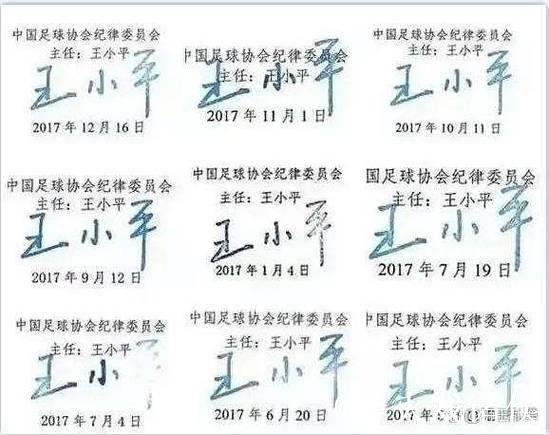 中国足球协会纪律委员会
主任：王小平
王小平
2017年12月16日
中国足球协会纪律委员会
主任：王小平
王小平
2017年11月1日
中国足球协会纪律委员会
主任：王小平
王小平
2017年10月11日
中国足球协会纪律委员会
主任：王小平
王小平
2017年9月12日
中国足球协会纪律委员会
主任：王小平
王小平
2017年1月4日
国足球协会纪律委员会
主任：王小平
王小平
2017年7月19日
中国足球协会纪律委员会
主任：王小平
王小平
2017年7月4日
中国足球协会纪律委员会
主任：王小平
王小平
2017年6月20日
中国足球协会纪律委员会
主任：王小平
王小平